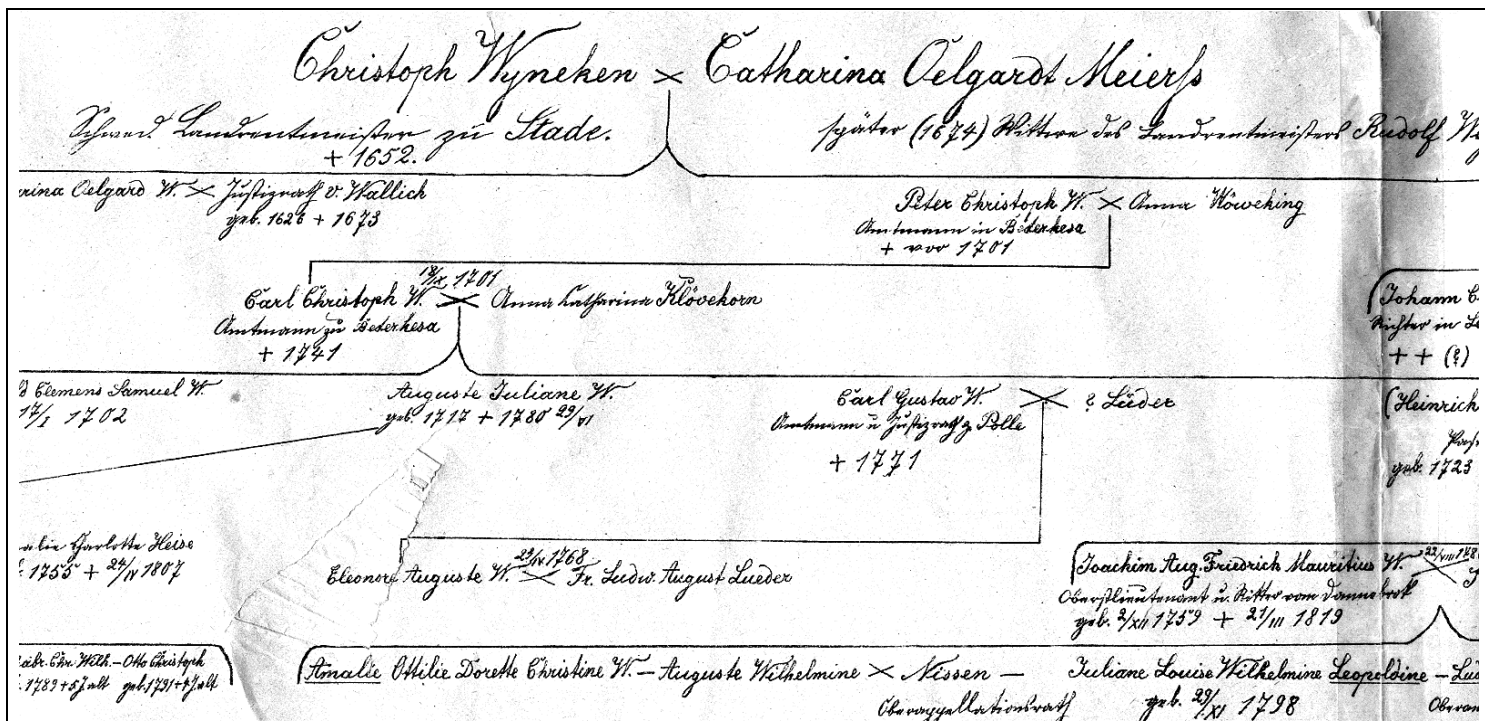 Christoph Wyneken × Catharina Oelgardt Meierß
Schwed. Landrentmeister zu Stade.
+ 1652.
später (1674) Wittwe des Landrentmeisters Rudolf Wy
rina Oelgard W. × Justizrath v. Wallich
geb. 1626 + 1673
Peter Christoph W. × Anna Höweking
Amtmann in Beterkesa
+ vor 1701
18/IX 1701
Carl Christoph W. × Anna Catharina Klövekorn
Amtmann zu Beterkesa
+ 1741
Johann C
Richter in
+ + (?)
Clemens Samuel W.
17/I 1702
Auguste Juliane W.
geb. 1717 + 1780 29/VI
Carl Gustav W. × ? Lüder
Amtmann u Justizrath z Polle
+ 1771
(Heinrich
Past
geb. 1723
alie Charlotte Heise
1755 + 24/IV 1807
23/IV 1768
Eleonore Auguste W. × Fr. Ludw. August Lueder
Joachim Aug. Friedrich Mauritius W. ×
Oberstlieutenant u. Ritter vom Dannebrok
geb. 2/XII 1759 + 21/III 1819
Gabr. Chr. Wilh. – Otto Christoph
1789 + 5 J alt geb. 1791 + J. alt
Amalie Ottilie Dorette Christine W. – Auguste Wilhelmine × Nissen – Juliane Louise Wilhelmine Leopoldine – Lud
Oberappellationsrath
geb. 29/XI 1798
Oberam